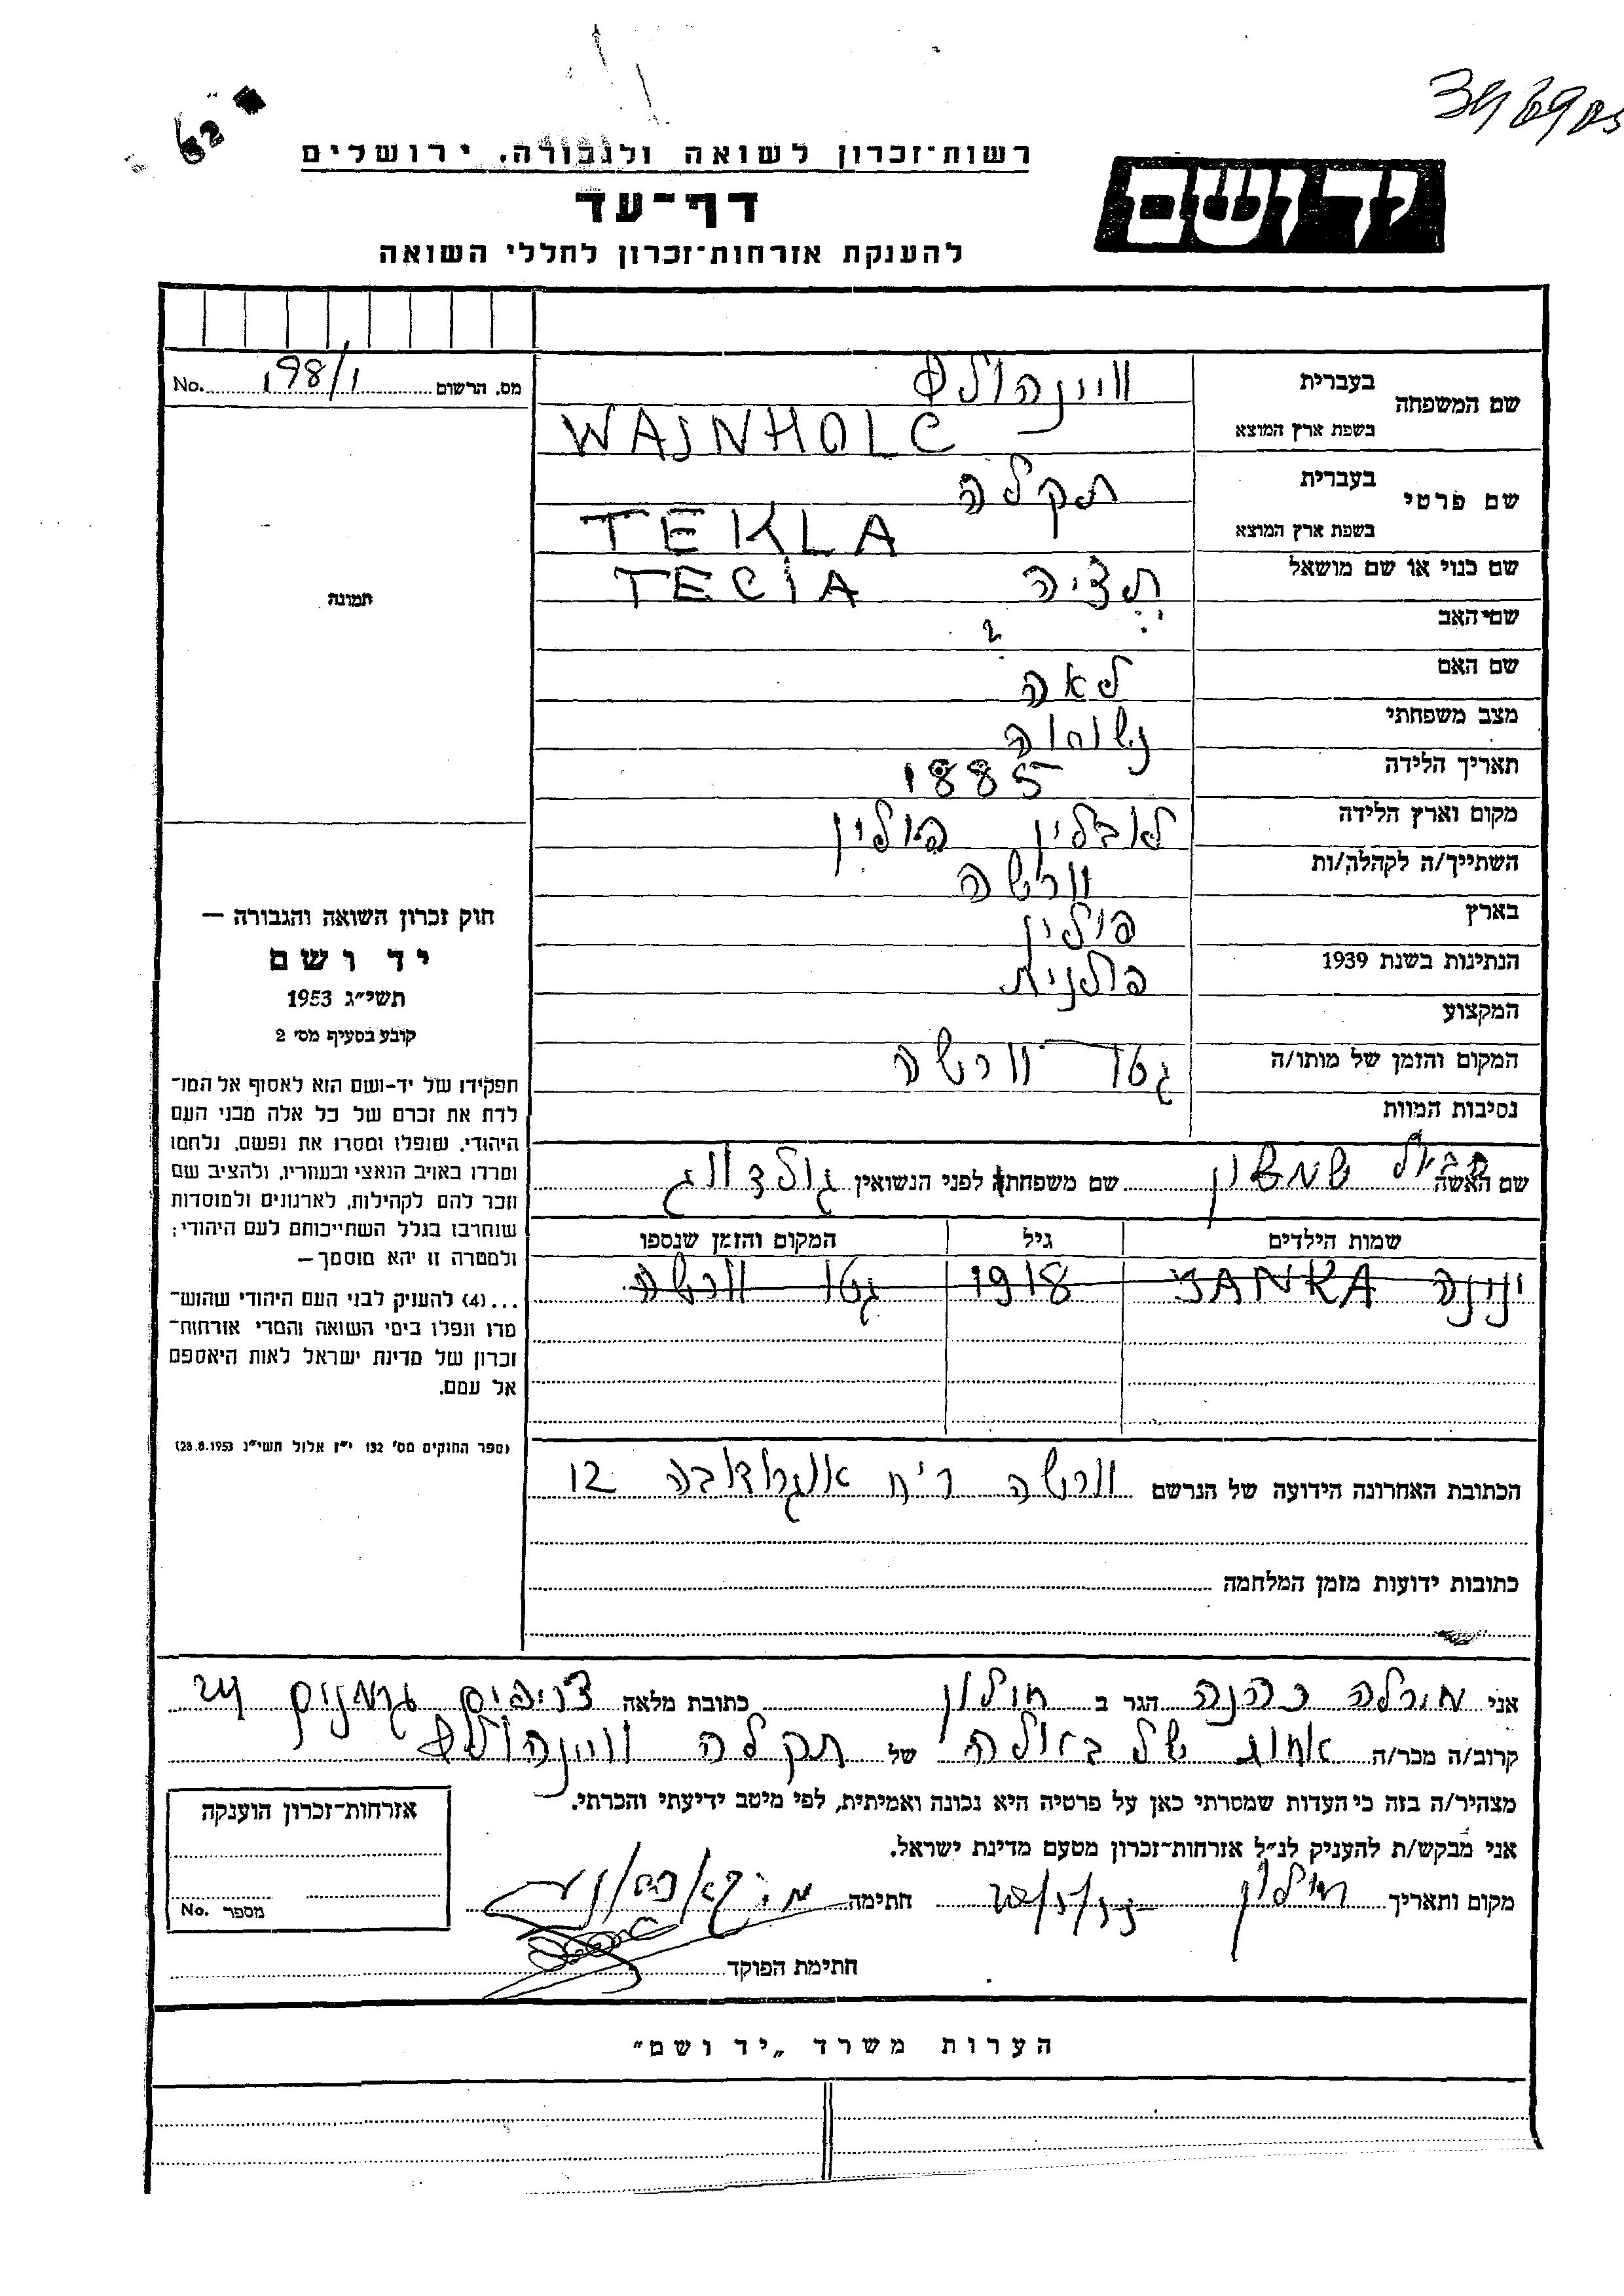 רשות־זכרון לשואה ולגבורה, ירושלים
יד ושם
דף־עד
להענקת אזרחות־זכרון לחללי השואה
מס. הרשום 198/1 No.
שם המשפחה
בעברית וויינהולץ
בשפת ארץ המוצא WAJNHOLC
שם פרטי
בעברית תקלה
בשפת ארץ המוצא TEKLA
שם כנוי או שם מושאל תציה TECIA
שם האב ?
שם האם לאה
מצב משפחתי נשואה
תאריך הלידה 1885
מקום וארץ הלידה לובלין פולין
השתייך/ה לקהלה/ות וורשה
בארץ פולין
הנתינות בשנת 1939 פולנית
המקצוע
המקום והזמן של מותו/ה גטו וורשה
נסיבות המוות
שם האשה שמשון שם משפחתה לפני הנשואין גולדווג
שמות הילדים גיל המקום והזמן שנספו
ינינה JANKA 1918 גטו וורשה
הכתובת האחרונה הידועה של הנרשם וורשה ר'ח 12
כתובות ידועות מזמן המלחמה
תמונה
חוק זכרון השואה והגבורה —
יד ושם
תשי״ג 1953
קובע בסעיף מס׳ 2
תפקידו של יד-ושם הוא לאסוף אל המו־
לדת את זכרם של כל אלה מבני העם
היהודי, שנפלו ומסרו את נפשם, נלחמו
ומרדו באויב הנאצי ובעוזריו, ולהציב שם
וזכר להם לקהילות, לארגונים ולמוסדות
שנחרבו בגלל השתייכותם לעם היהודי;
ולמטרה זו יהא מוסמך—
...(4) להעניק לבני העם היהודי שהוש־
מדו ונפלו בימי השואה והמרי אזרחות־
זכרון של מדינת ישראל לאות היאספם
אל עמם.
(ספר החוקים מס׳ 132 י״ז אלול תשי״ג 28.8.1953)
אני כהנה הגר ב חולון כתובת מלאה
קרוב/ה מכר/ה אחות של של תקלה וויינהולץ
מצהיר/ה בזה כי העדות שמסרתי כאן על פרטיה היא נכונה ואמיתית, לפי מיטב ידיעתי והכרתי.
אני מבקש/ת להעניק לנ״ל אזרחות־זכרון מטעם מדינת ישראל.
מקום ותאריך חולון חתימה
חתימת הפוקד
אזרחות־זכרון הוענקה
מספר No.
הערות משרד „יד ושם״